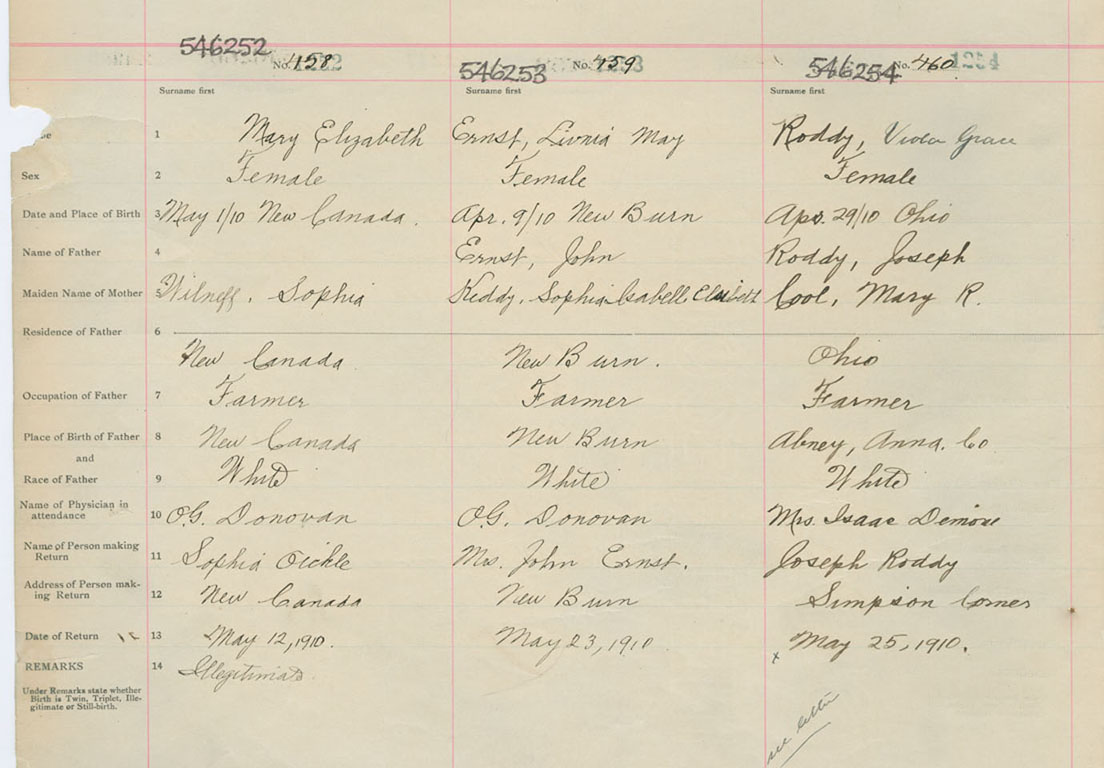 546252 No. 158 546253 No. 459 546254 No. 460 1254
Surname first Surname first Surname first
1 Mary Elizabeth Ernst, Livnia May Roddy, Viola Grace
Sex 2 Female Female Female
Date and Place of Birth 3 May 1/10 New Canada. Apr. 9/10 New Burn Apr. 29/10 Ohio
Name of Father 4 Ernst, John Roddy, Joseph
Maiden Name of Mother 5 Wilneff, Sophia Keddy, Sophia Isabelle Cool, Mary R.
Residence of Father 6
New Canada New Burn. Ohio
Occupation of Father 7 Farmer Farmer Farmer
Place of Birth of Father 8 New Canada New Burn Abney, Anna. Co
and
Race of Father 9 White White White
Name of Physician in
attendance 10 O.G. Donovan O.G. Donovan Mrs. Isaac Demone
Name of Person making
Return 11 Sophia Oickle Mrs. John Ernst. Joseph Roddy
Address of Person mak-
ing Return 12 New Canada New Burn Simpson Corner
Date of Return 13 May 12, 1910. May 23, 1910 x May 25, 1910.
REMARKS 14 Illegitimate
Under Remarks state whether
Birth is Twin, Triplet, Ille-
gitimate or Still-birth.
see letter